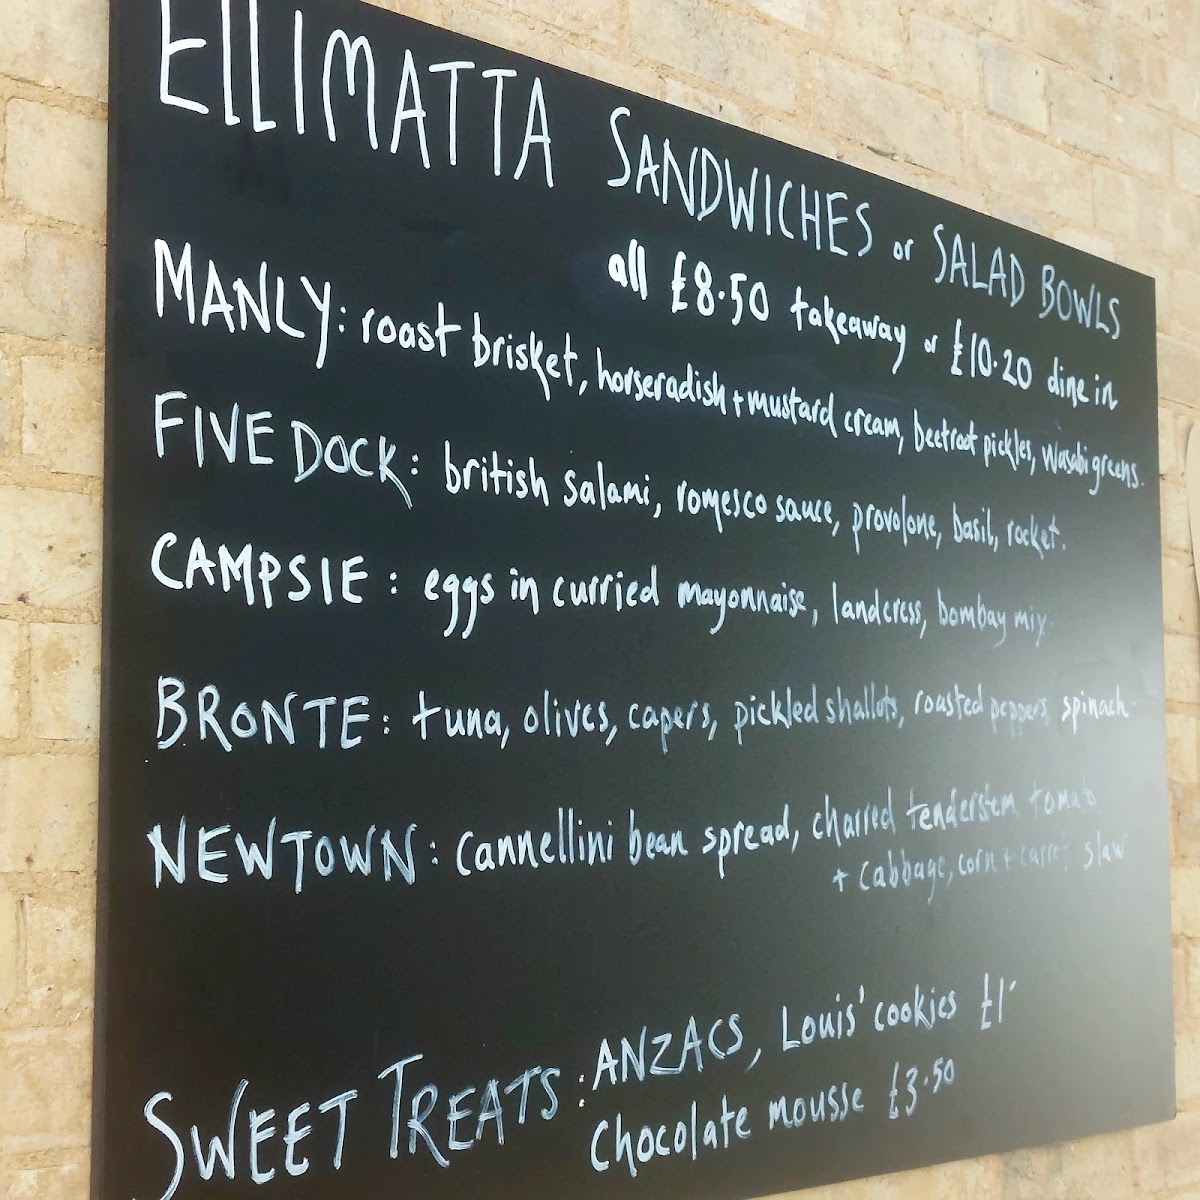 ELLIMATTA SANDWICHES or SALAD BOWLS
all £8.50 takeaway or £10.20 dine in
MANLY: roast brisket, horseradish + mustard cream, beetroot pickles, wasabi greens.
FIVE DOCK: british salami, romesco sauce, provolone, basil, rocket.
CAMPSIE: eggs in curried mayonnaise, landcress, bombay mix.
BRONTE: tuna, olives, capers, pickled shallots, roasted peppers, spinach.
NEWTOWN: cannellini bean spread, charred tenderstem, tomato
+ cabbage, corn + carrot slaw
SWEET TREATS: ANZACS, Louis' cookies £1
Chocolate mousse £3.50